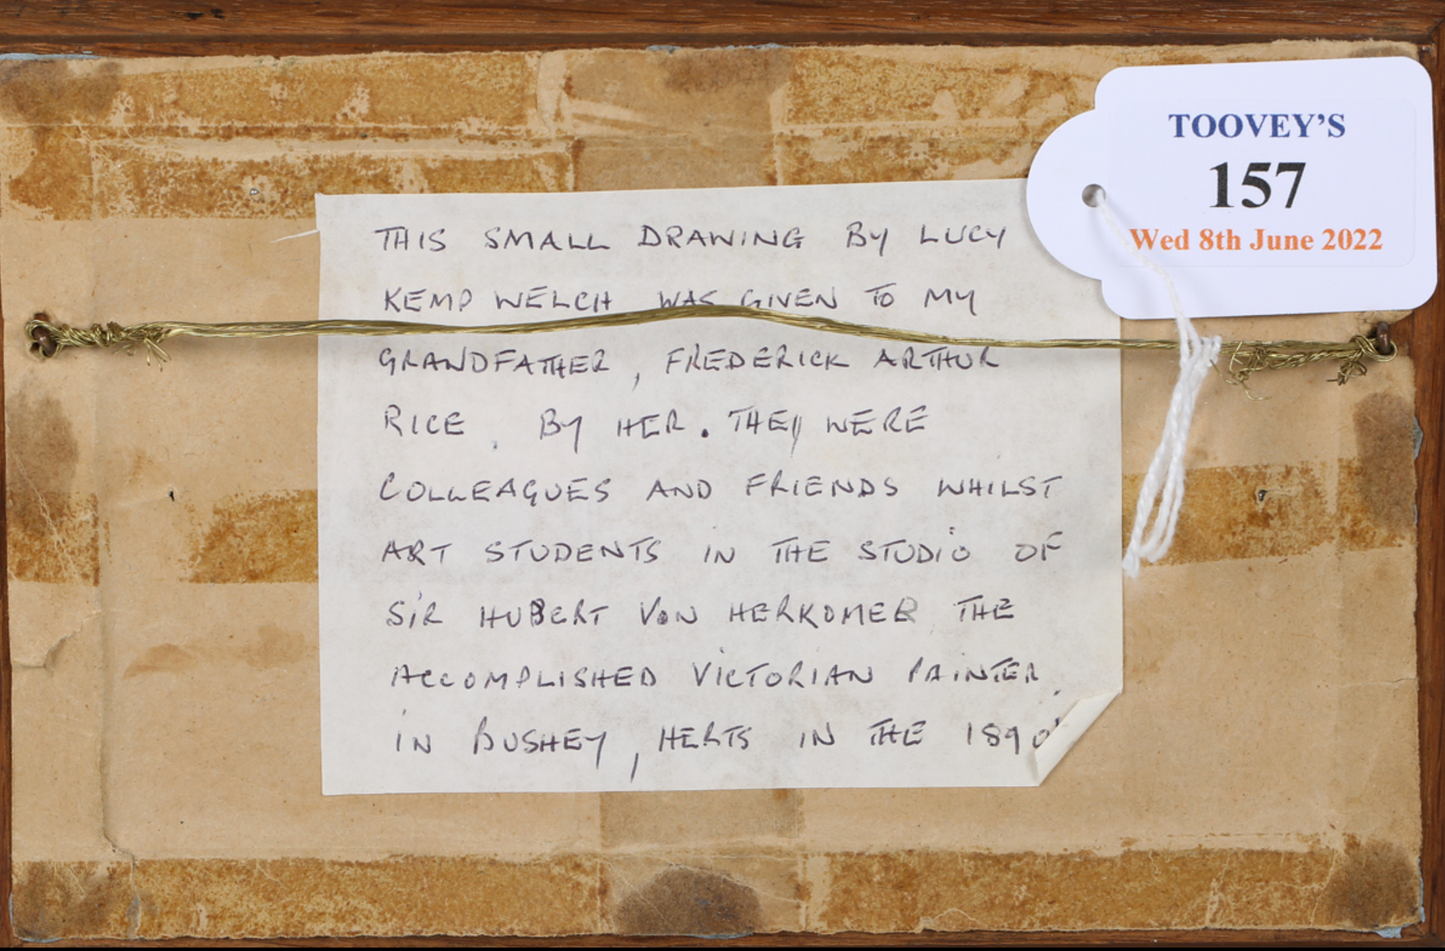 TOOVEY'S
157
Wed 8th June 2022
THIS SMALL DRAWING BY LUCY
KEMP WELCH WAS GIVEN TO MY
GRANDFATHER, FREDERICK ARTHUR
RICE, BY HER. THEY WERE
COLLEAGUES AND FRIENDS WHILST
ART STUDENTS IN THE STUDIO OF
SIR HUBERT VON HERKOMER THE
ACCOMPLISHED VICTORIAN PAINTER,
IN BUSHEY, HERTS IN THE 1890'